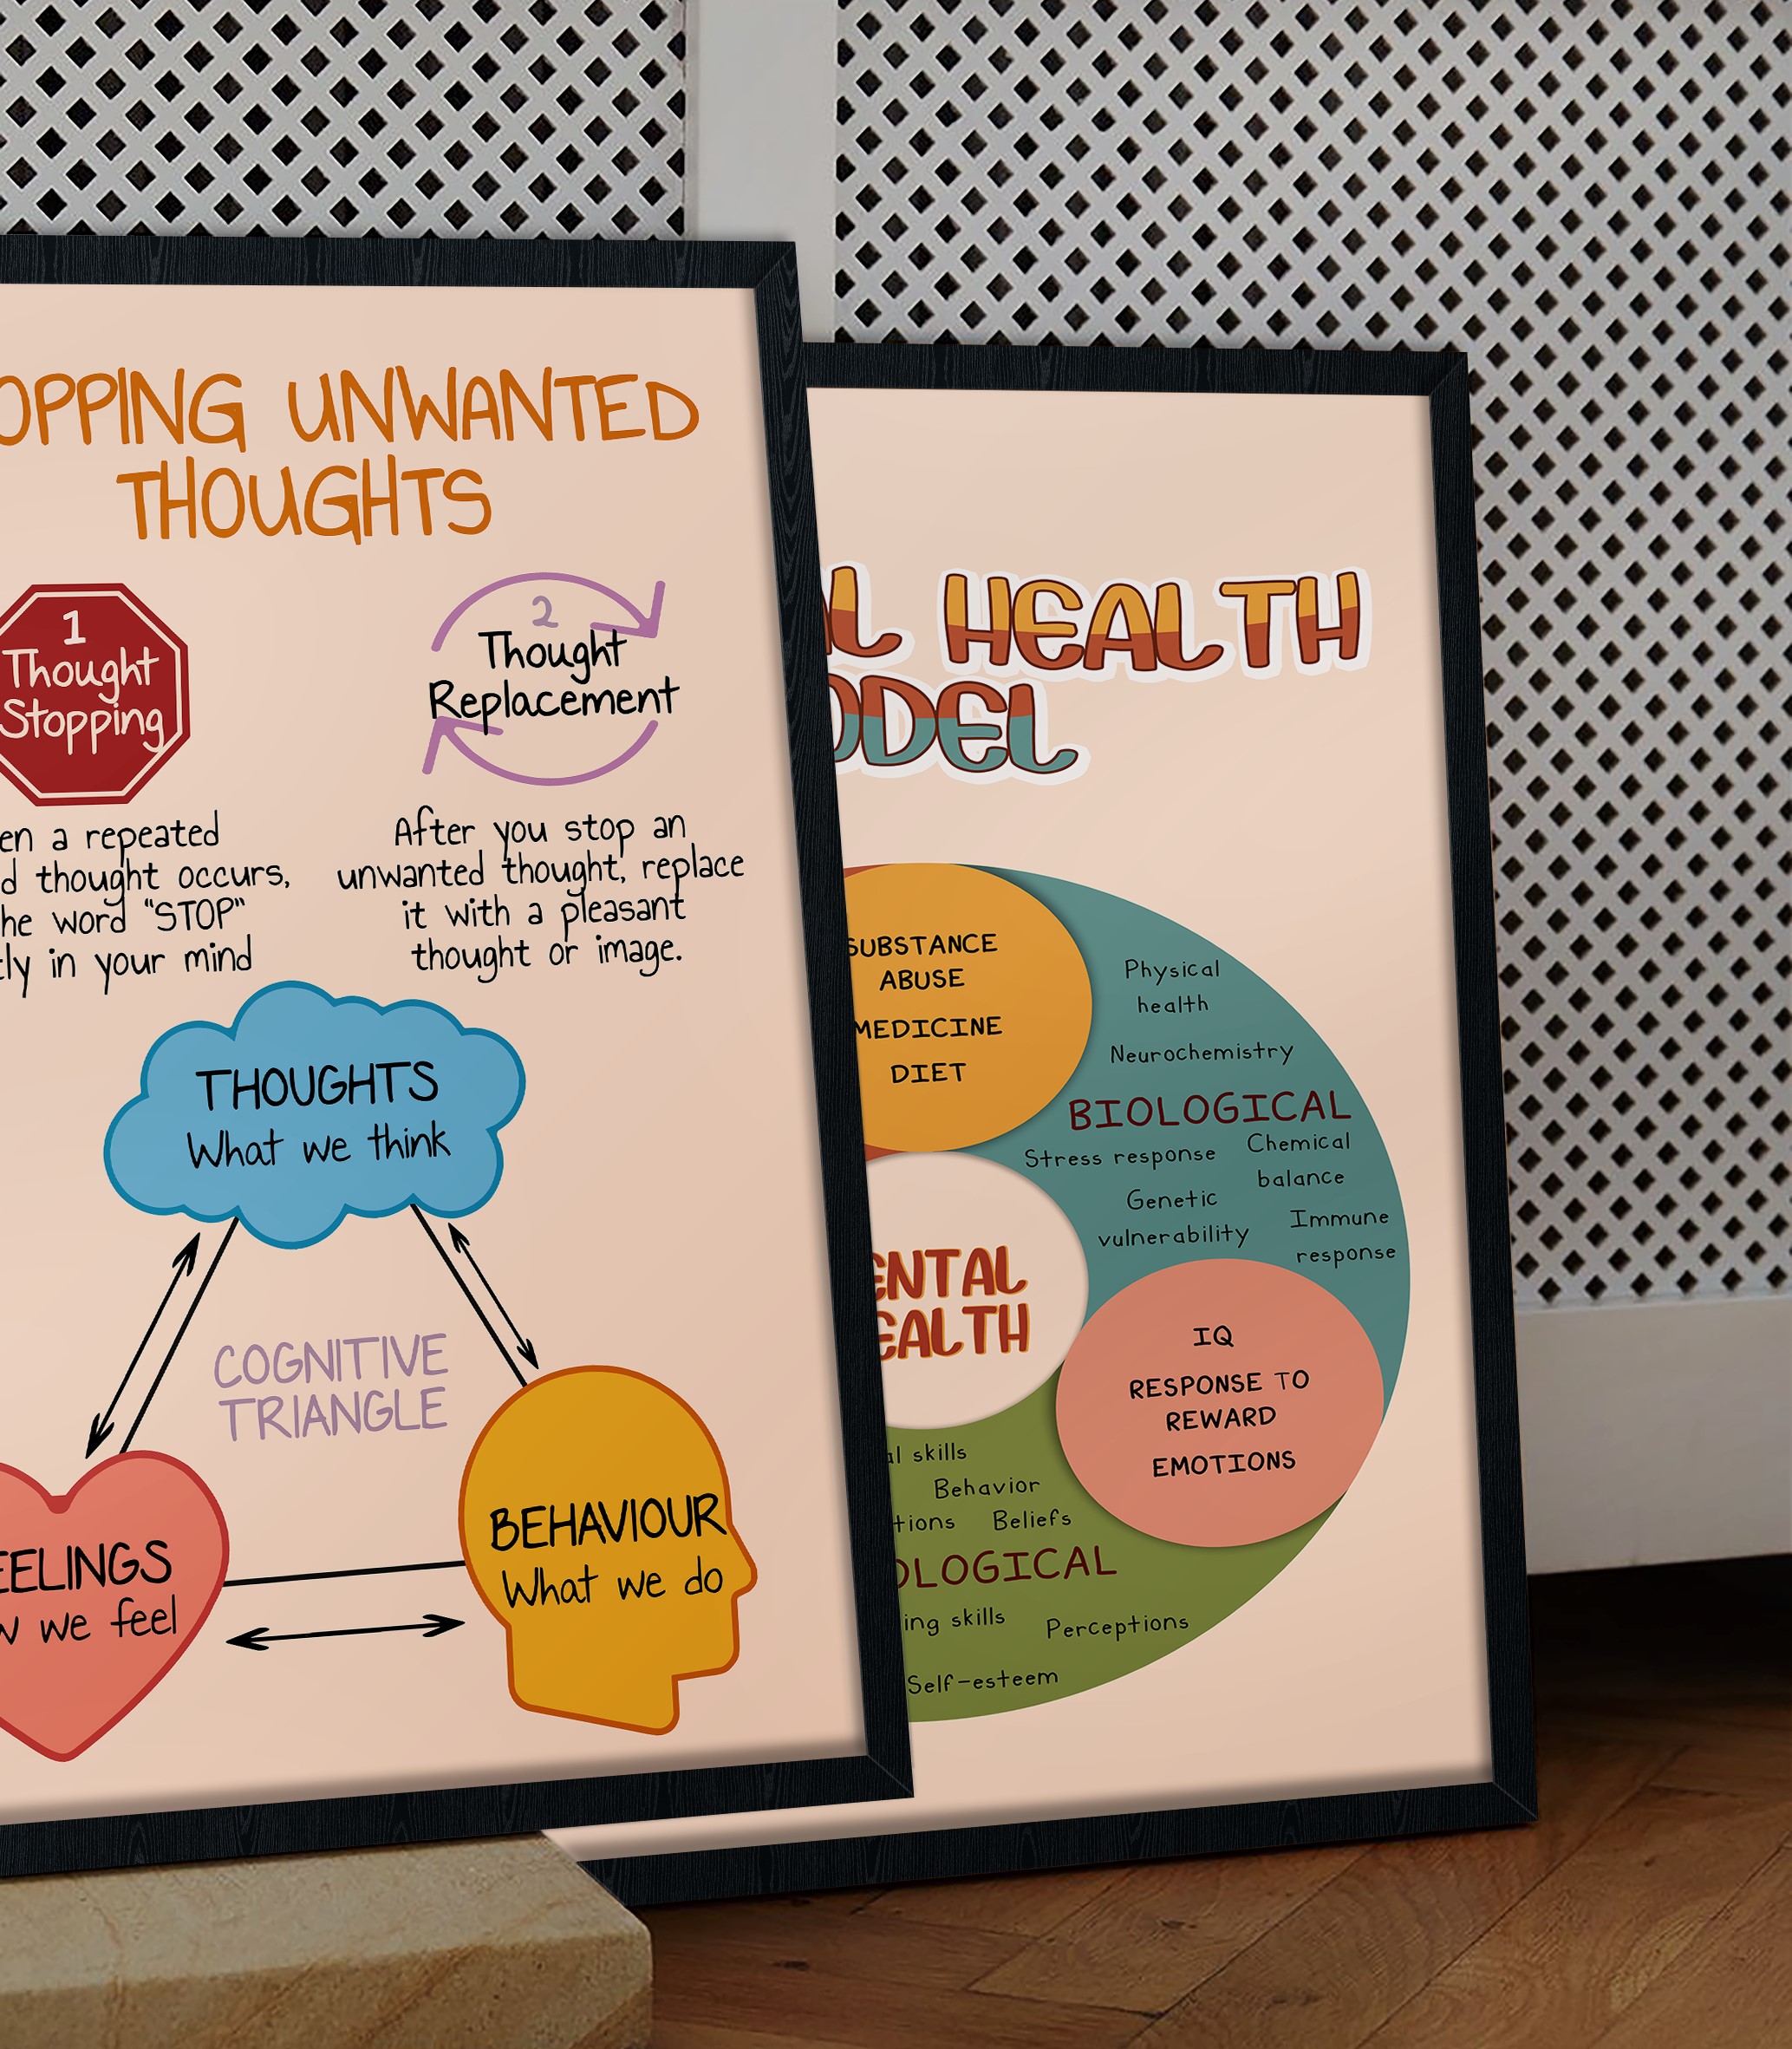 OPPING UNWANTED
THOUGHTS
1
Thought
Stopping
2
Thought
Replacement
en a repeated
d thought occurs,
he word "STOP"
tly in your mind
After you stop an
unwanted thought, replace
it with a pleasant
thought or image.
THOUGHTS
What we think
COGNITIVE
TRIANGLE
EELINGS
w we feel
BEHAVIOUR
What we do
AL HEALTH
ODEL
SUBSTANCE
ABUSE
MEDICINE
DIET
Physical
health
Neurochemistry
BIOLOGICAL
Stress response
Chemical
balance
Genetic
vulnerability
Immune
response
ENTAL
EALTH
IQ
RESPONSE TO
REWARD
EMOTIONS
al skills
Behavior
tions Beliefs
OLOGICAL
ing skills
Perceptions
Self-esteem